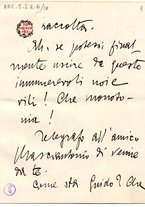 ARC. 5. I. 2. 6/18
5
raccolta.
Ah, se potessi final
mente uscire da queste
innumerevoli noie
vili! Che monoto-
nia!
Telegrafo all'amico
Mascantonio di venire
da te.
Come sta Guido? Che